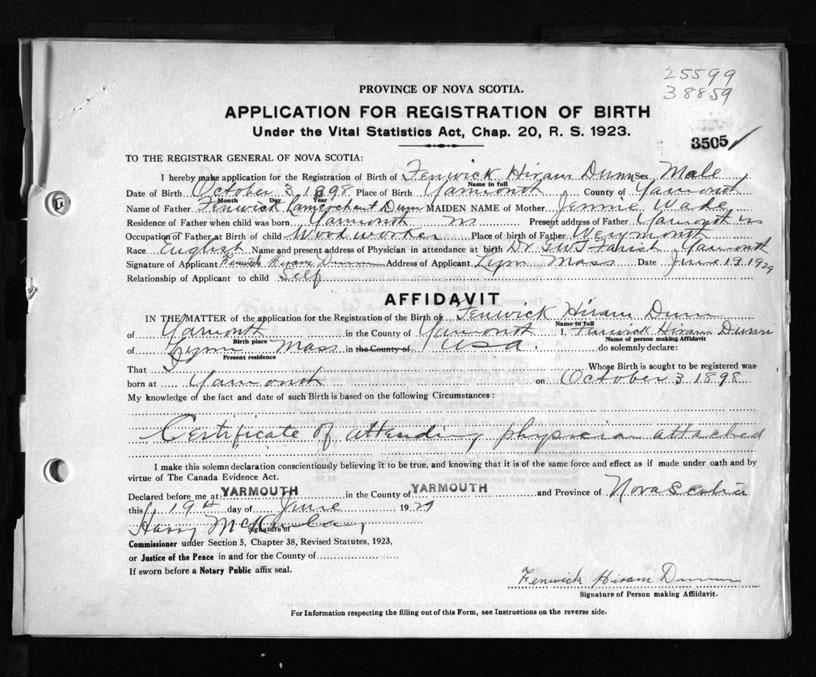 25599
38859
PROVINCE OF NOVA SCOTIA.
APPLICATION FOR REGISTRATION OF BIRTH
Under the Vital Statistics Act, Chap. 20, R. S. 1923.
3505
TO THE REGISTRAR GENERAL OF NOVA SCOTIA:
I hereby make application for the Registration of Birth of Fenwick Hiram Dunn Sex Male
Name in full
Date of Birth October 3, 1898 Place of Birth Yarmouth County of Yarmouth
Month Day Year
Name of Father Fenwick Dunn MAIDEN NAME of Mother Jennie Wade
Residence of Father when child was born Yarmouth NS Present address of Father Yarmouth NS
Occupation of Father at Birth of child Wood worker Place of birth of Father Weymouth
Race English Name and present address of Physician in attendance at birth Dr. Yarmouth
Signature of Applicant Fenwick Hiram Dunn Address of Applicant Lynn Mass Date June 19 1929
Relationship of Applicant to child Self
AFFIDAVIT
IN THE MATTER of the application for the Registration of the Birth of Fenwick Hiram Dunn
Name in full
of Yarmouth in the County of Yarmouth I, Fenwick Hiram Dunn
Birth place Name of person making Affidavit
of Lynn Mass in the County of USA. do solemnly declare:
Present residence
That I Whose Birth is sought to be registered was
born at Yarmouth on October 3 1898
My knowledge of the fact and date of such Birth is based on the following Circumstances:
Certificate of attending physician attached
I make this solemn declaration conscientiously believing it to be true, and knowing that it is of the same force and effect as if made under oath and by
virtue of The Canada Evidence Act.
Declared before me at YARMOUTH in the County of YARMOUTH and Province of Nova Scotia
this 19th day of June 1929
Harry
Signature of
Commissioner under Section 5, Chapter 38, Revised Statutes, 1923,
or Justice of the Peace in and for the County of
If sworn before a Notary Public affix seal.
Fenwick Hiram Dunn
Signature of Person making Affidavit.
For Information respecting the filling out of this Form, see Instructions on the reverse side.